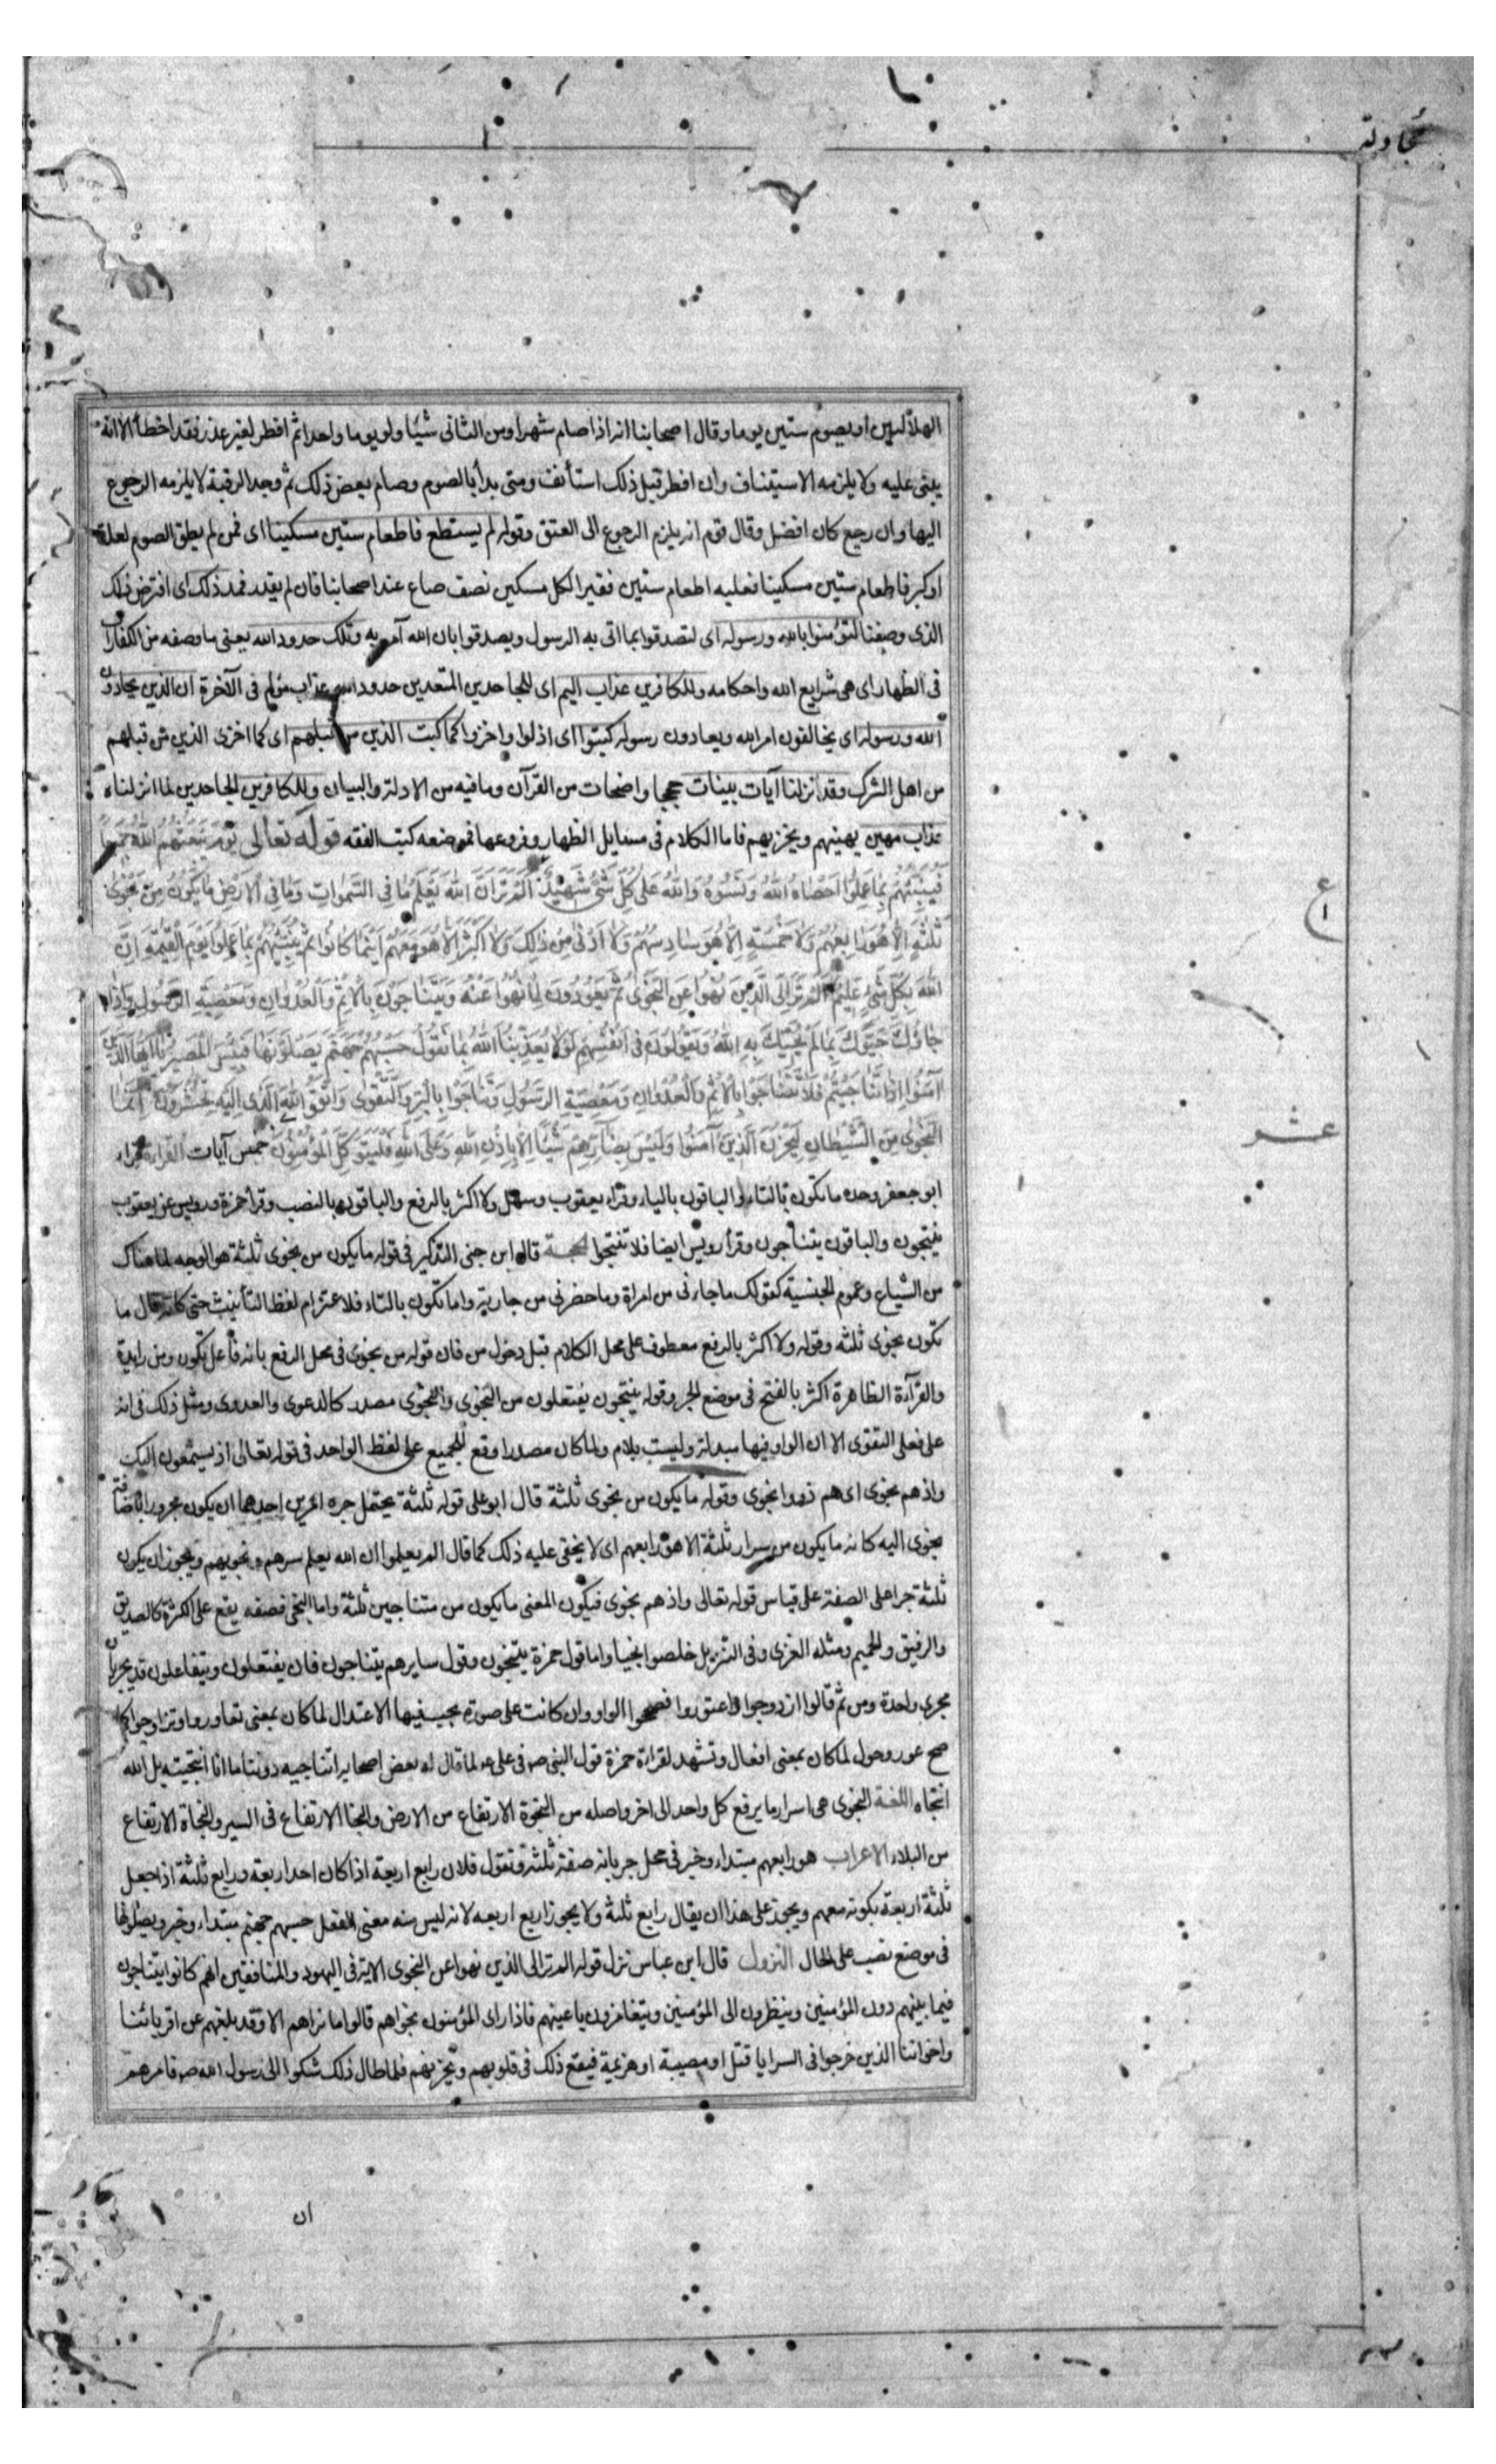 مجادلة
الهلالين او يصوم ستين يوما وقال اصحابنا انه اذا صام شهرا ومن الثانى شيئا ولو يوما واحدا ثم افطر لغير عذر فقد اخطأ الا انه
يبنى عليه ولا يلزمه الاستيناف وان افطر قبل ذلك استأنف ومتى بدأ بالصوم وصام بعض ذلك ثم وجد الرقبة لا يلزمه الرجوع
اليها وان رجع كان افضل وقال قوم انه يلزم الرجوع الى العتق وقوله لم يستطع فاطعام ستين مسكينا اى فمن لم يطق الصوم لعلة
او كبر فاطعام ستين مسكينا فعليه اطعام ستين فقيرا لكل مسكين نصف صاع عند اصحابنا فان لم يقدر فمد ذلك اى افترض ذلك
الذى وصفنا لتؤمنوا بالله ورسوله اى لتصدقوا بما اتى به الرسول ويصدقوا بان الله آمر به وتلك حدود الله يعنى ما وصفه من الكفارات
فى الظهار اى هى شرايع الله واحكامه وللكافرين عذاب اليم اى للجاحدين المتعدين حدود الله عذاب مؤلم فى الآخرة ان الذين يحادون
الله ورسوله اى يخالفون امر الله ويعادون رسوله كبتوا اى اذلوا واخزوا كما كبت الذين من قبلهم اى كما اخزى الذين من قبلهم
من اهل الشرك وقد انزلنا آيات بينات حججا واضحات من القرآن وما فيه من الادلة والبيان وللكافرين الجاحدين لما انزلناه
عذاب مهين يهينهم ويخزيهم فاما الكلام فى مسايل الظهار وفروعها فموضعه كتب الفقه قوله تعالى يَوْمَ يَبْعَثُهُمُ اللهُ جَمِيعًا
فَيُنَبِّئُهُمْ بِمَا عَمِلُوا اَحْصَاهُ اللهُ وَنَسُوهُ وَاللهُ عَلى كُلِّ شَىْءٍ شَهِيدٌ اَلَمْ تَرَ اَنَّ اللهَ يَعْلَمُ مَا فِى السَّمٰوَاتِ وَمَا فِى الْاَرْضِ مَا يَكُونُ مِنْ نَجْوٰى
ثَلٰثَةٍ اِلَّا هُوَ رَابِعُهُمْ وَلَا خَمْسَةٍ اِلَّا هُوَ سَادِسُهُمْ وَلَا اَدْنٰى مِنْ ذٰلِكَ وَلَا اَكْثَرَ اِلَّا هُوَ مَعَهُمْ اَيْنَمَا كَانُوا ثُمَّ يُنَبِّئُهُمْ بِمَا عَمِلُوا يَوْمَ الْقِيٰمَةِ اِنَّ
اللهَ بِكُلِّ شَىْءٍ عَلِيمٌ اَلَمْ تَرَ اِلَى الَّذِينَ نُهُوا عَنِ النَّجْوٰى ثُمَّ يَعُودُونَ لِمَا نُهُوا عَنْهُ وَيَتَنَاجَوْنَ بِالْاِثْمِ وَالْعُدْوَانِ وَمَعْصِيَةِ الرَّسُولِ وَاِذَا
جَاؤُكَ حَيَّوْكَ بِمَا لَمْ يُحَيِّكَ بِهِ اللهُ وَيَقُولُونَ فِى اَنْفُسِهِمْ لَوْلَا يُعَذِّبُنَا اللهُ بِمَا نَقُولُ حَسْبُهُمْ جَهَنَّمُ يَصْلَوْنَهَا فَبِئْسَ الْمَصِيرُ يَا اَيُّهَا الَّذِينَ
آمَنُوا اِذَا تَنَاجَيْتُمْ فَلَا تَتَنَاجَوْا بِالْاِثْمِ وَالْعُدْوَانِ وَمَعْصِيَةِ الرَّسُولِ وَتَنَاجَوْا بِالْبِرِّ وَالتَّقْوٰى وَاتَّقُوا اللهَ الَّذِى اِلَيْهِ تُحْشَرُونَ اِنَّمَا
النَّجْوٰى مِنَ الشَّيْطَانِ لِيَحْزُنَ الَّذِينَ آمَنُوا وَلَيْسَ بِضَارِّهِمْ شَيْئًا اِلَّا بِاِذْنِ اللهِ وَعَلَى اللهِ فَلْيَتَوَكَّلِ الْمُؤْمِنُونَ خمس آيات القراءة قراء
ابو جعفر وحده ما تكون بالتاء والباقون بالياء وقراء يعقوب وسهل ولا اكثر بالرفع والباقون بالنصب وقرأ حمزة ورويس عن يعقوب
ينتجون والباقون يتناجون وقرأ رويس ايضا فلا تنتجوا الحجة قال ابن جنى التذكير فى قوله ما يكون من نجوى ثلثة هو الوجه لما هناك
من الشياع وعموم الجنسية كقولك ما جاءنى من امراة وما حضرنى من جارية واما تكون بالتاء فلاعتزام لفظ التأنيث حتى كانه قال ما
تكون نجوى ثلثة وقوله ولا اكثر بالرفع معطوف على محل الكلام قبل دخول من فان قوله من نجوى فى محل الرفع بانه فاعل يكون ومن زايدة
والقرآءة الظاهرة اكثر بالفتح فى موضع الجر وقوله ينتجون يفتعلون من النجوى والنجوى مصدر كالدعوى والعدوى ومثل ذلك فى انه
على فعلى التقوى الا ان الواو فيها مبدلة وليست بلام ولما كان مصدرا وقع للجميع على لفظ الواحد فى قوله تعالى اذ يستمعون اليك
واذ هم نجوى اى هم ذووا نجوى وقوله ما يكون من نجوى ثلثة قال ابو على قوله ثلثة يحتمل جره امرين احدهما ان يكون مجرورا باضافة
نجوى اليه كانه ما يكون من سرار ثلثة الا هو رابعهم اى لا يخفى عليه ذلك كما قال الم يعلموا ان الله يعلم سرهم ونجويهم ويجوز ان يكون
ثلثة جرا على الصفة على قياس قوله تعالى واذ هم نجوى فيكون المعنى ما يكون من متناجين ثلثة واما النجى فصفه يقع على الكثرة كالصديق
والرفيق والحميم ومثله الغزى وفى التنزيل خلصوا نجيا واما قول حمزة ينتجون وقول سايرهم يتناجون فان يفتعلون ويتفاعلون قد يجريان
مجرى واحدة ومن ثم قالوا ازدوجوا واعتوروا فصححوا الواو وان كانت على صورة يجب فيها الاعتدال لما كان بمعنى تعاوروا وتزاوجوا كما
صح عور وحول لما كان بمعنى افعال وتشهد لقراءة حمزة قول النبى ص فى على ع لما قال له بعض اصحابه اتناجيه دوننا ما انا انتجيته بل الله
انتجاه اللغة النجوى هى اسرار ما يرفع كل واحد الى اخر واصله من النجوة الارتفاع من الارض والنجا الارتفاع فى السير والنجاة الارتفاع
من البلاء الاعراب هو رابعهم مبتداء وخبر فى محل جر بانه صفة ثلثة وتقول فلان رابع اربعة اذا كان احد اربعة ورابع ثلثة اذا جعل
ثلثة اربعة بكونه معهم ويجوز على هذا ان يقال رابع ثلثة ولا يجوز رابع اربعه لانه ليس منه معنى الفعل حسبهم جهنم مبتداء وخبر ويصلونها
فى موضع نصب على الحال النزول قال ابن عباس نزل قوله الم تر الى الذين نهوا عن النجوى الاية فى اليهود والمنافقين انهم كانوا يتناجون
فيما بينهم دون المؤمنين وينظرون الى المؤمنين ويتغامزون باعينهم فاذا راى المؤمنون نجواهم قالوا ما نراهم الا وقد بلغهم عن اقربائنا
واخواننا الذين خرجوا فى السرايا قتل او مصيبة او هزيمة فيقع ذلك فى قلوبهم ويحزنهم فلما طال ذلك شكوا الى رسول الله ص فامرهم
ع
عشر
ان